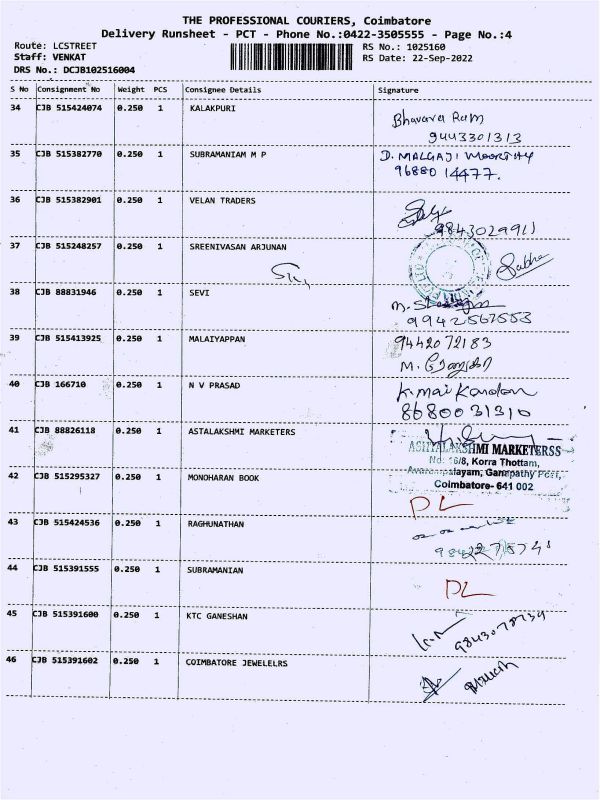 THE PROFESSIONAL COURIERS, Coimbatore
Delivery Runsheet - PCT - Phone No.:0422-3505555 - Page No.:4
Route: LCSTREET RS No.: 1025160
Staff: VENKAT RS Date: 22-Sep-2022
DRS No.: DCJB102516004
S No Consignment No Weight PCS Consignee Details Signature
34 CJB 515424074 0.250 1 KALAKPURI
Bhavara Ram
9443301313
35 CJB 515382770 0.250 1 SUBRAMANIAM M P D. MALGAJI MOORTHY
96880 14477.
36 CJB 515382901 0.250 1 VELAN TRADERS
9843029911
37 CJB 515248257 0.250 1 SREENIVASAN ARJUNAN
Subha
38 CJB 88831946 0.250 1 SEVI
9942567553
39 CJB 515413925 0.250 1 MALAIYAPPAN 9442072183
M.
40 CJB 166710 0.250 1 N V PRASAD K. mai Kandan
8680031310
41 CJB 88826118 0.250 1 ASTALAKSHMI MARKETERS
ASHTALAKSHMI MARKETERSS
No: 16/8, Korra Thottam,
Avarampalayam, Ganapathy Post,
Coimbatore- 641 002
42 CJB 515295327 0.250 1 MONOHARAN BOOK
DL
43 CJB 515424536 0.250 1 RAGHUNATHAN
44 CJB 515391555 0.250 1 SUBRAMANIAN
DL
45 CJB 515391600 0.250 1 KTC GANESHAN
46 CJB 515391602 0.250 1 COIMBATORE JEWELELRS